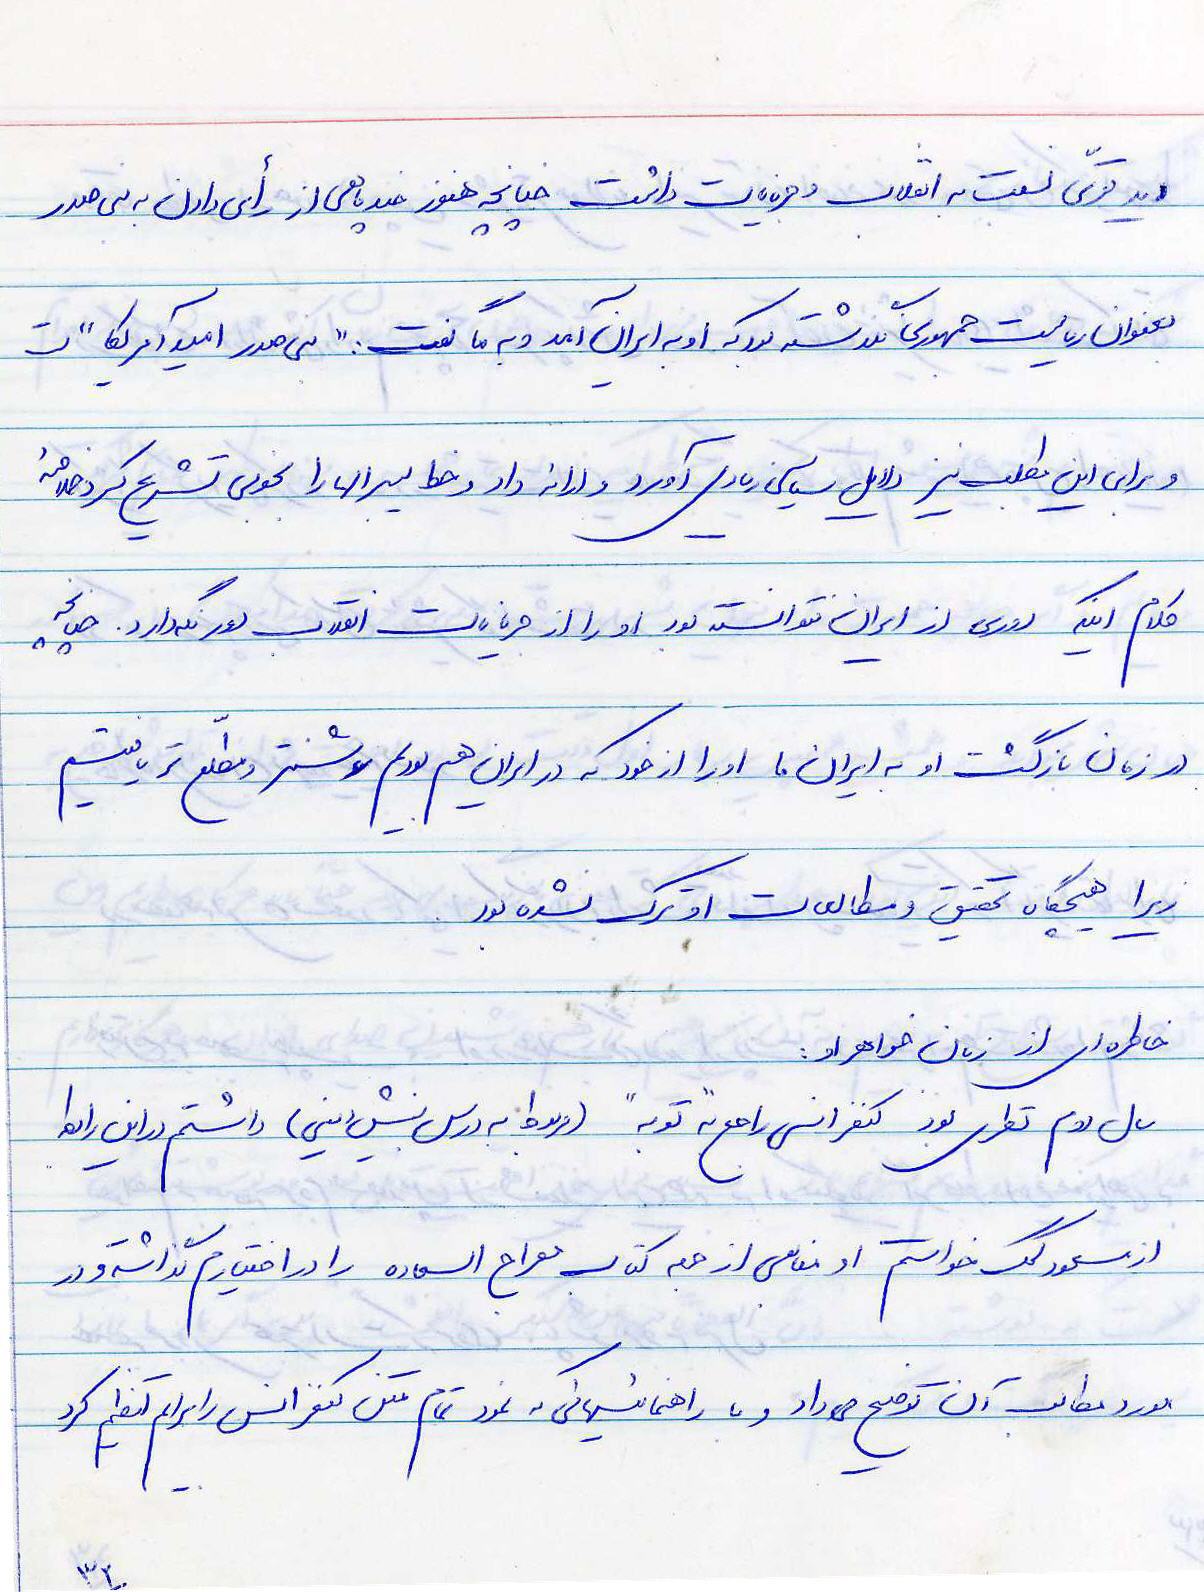 دید قوی نسبت به انقلاب و جریانات داشت چنانچه هنوز چند ماهی از رأی دادن به بنی صدر
بعنوان ریاست جمهوری نگذشته بود که او به ایران آمد و به ما گفت: "بنی صدر امید آمریکا" ست
و برای این مطلب نیز دلایل سیاسی زیادی آورد و ارائه داد و خط لیبرالها را بخوبی تشریح کرد خلاصهٔ
کلام اینکه دوری از ایران نتوانسته بود او را از جریانات انقلاب دور نگه دارد. چنانچه
در زمان بازگشت او به ایران ما او را از خود که در ایران هم بودیم روشنتر و مطّلع تر یافتیم
زیرا هیچگاه تحقیق و مطالعات او ترک نشده بود.
خاطره‌ای از زبان خواهر او:
سال دوم نظری بود کنفرانسی راجع به "توبه" (مربوط به درس بینش دینی) داشتم در این رابطه
از مسعود کمک خواستم او منابعی از جمله کتاب معراج السعاده را در اختیارم گذاشته و در
مورد مطالب آن توضیح می داد و با راهنمائیهائی که نمود تمام متن کنفرانس را برایم تنظیم کرد
۳۲